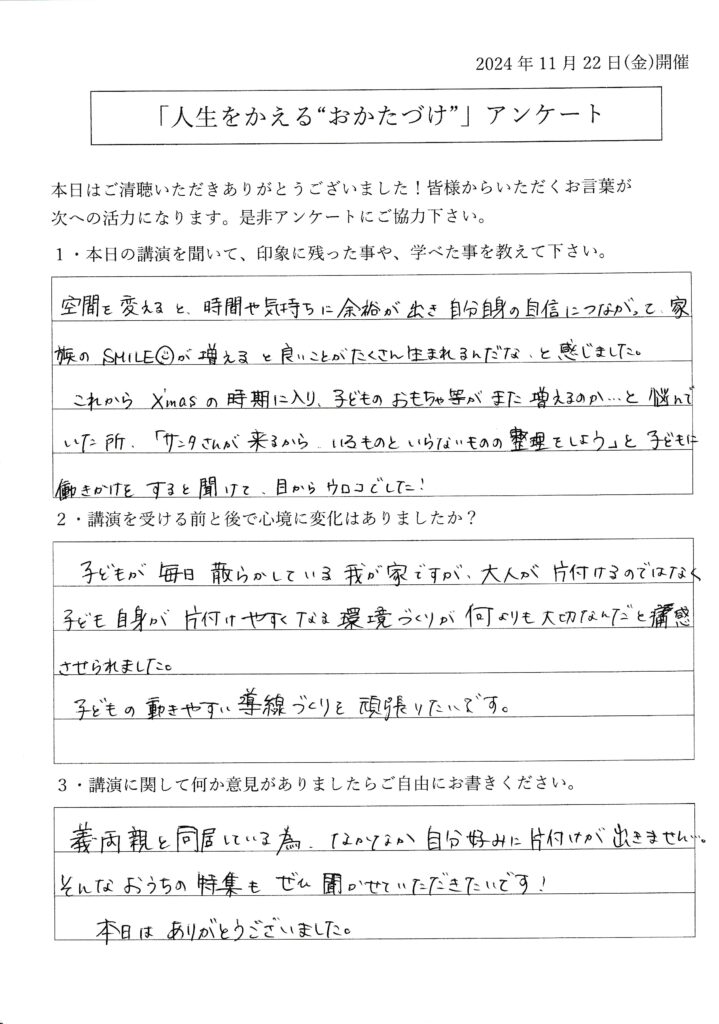 2024年11月22日(金)開催
「人生をかえる“おかたづけ”」アンケート
本日はご清聴いただきありがとうございました！皆様からいただくお言葉が
次への活力になります。是非アンケートにご協力下さい。
１・本日の講演を聞いて、印象に残った事や、学べた事を教えて下さい。
空間を変えると、時間や気持ちに余裕が出き自分自身の自信につながって、家
族のSMILE☺が増えると良いことがたくさん生まれるんだな、と感じました。
これからX'masの時期に入り、子どものおもちゃ等がまた増えるのか…と悩んで
いた所、「サンタさんが来るから、いるものといらないものの整理をしよう」と子どもに
働きかけをすると聞けて、目からウロコでした！
２・講演を受ける前と後で心境に変化はありましたか？
子どもが毎日散らかしている我が家ですが、大人が片付けるのではなく
子ども自身が片付けやすくなる環境づくりが何よりも大切なんだと痛感
させられました。
子どもの動きやすい導線づくりを頑張りたいです。
３・講演に関して何か意見がありましたらご自由にお書きください。
義両親と同居している為、なかなか自分好みに片付けが出きません…。
そんなおうちの特集もぜひ聞かせていただきたいです！
本日はありがとうございました。